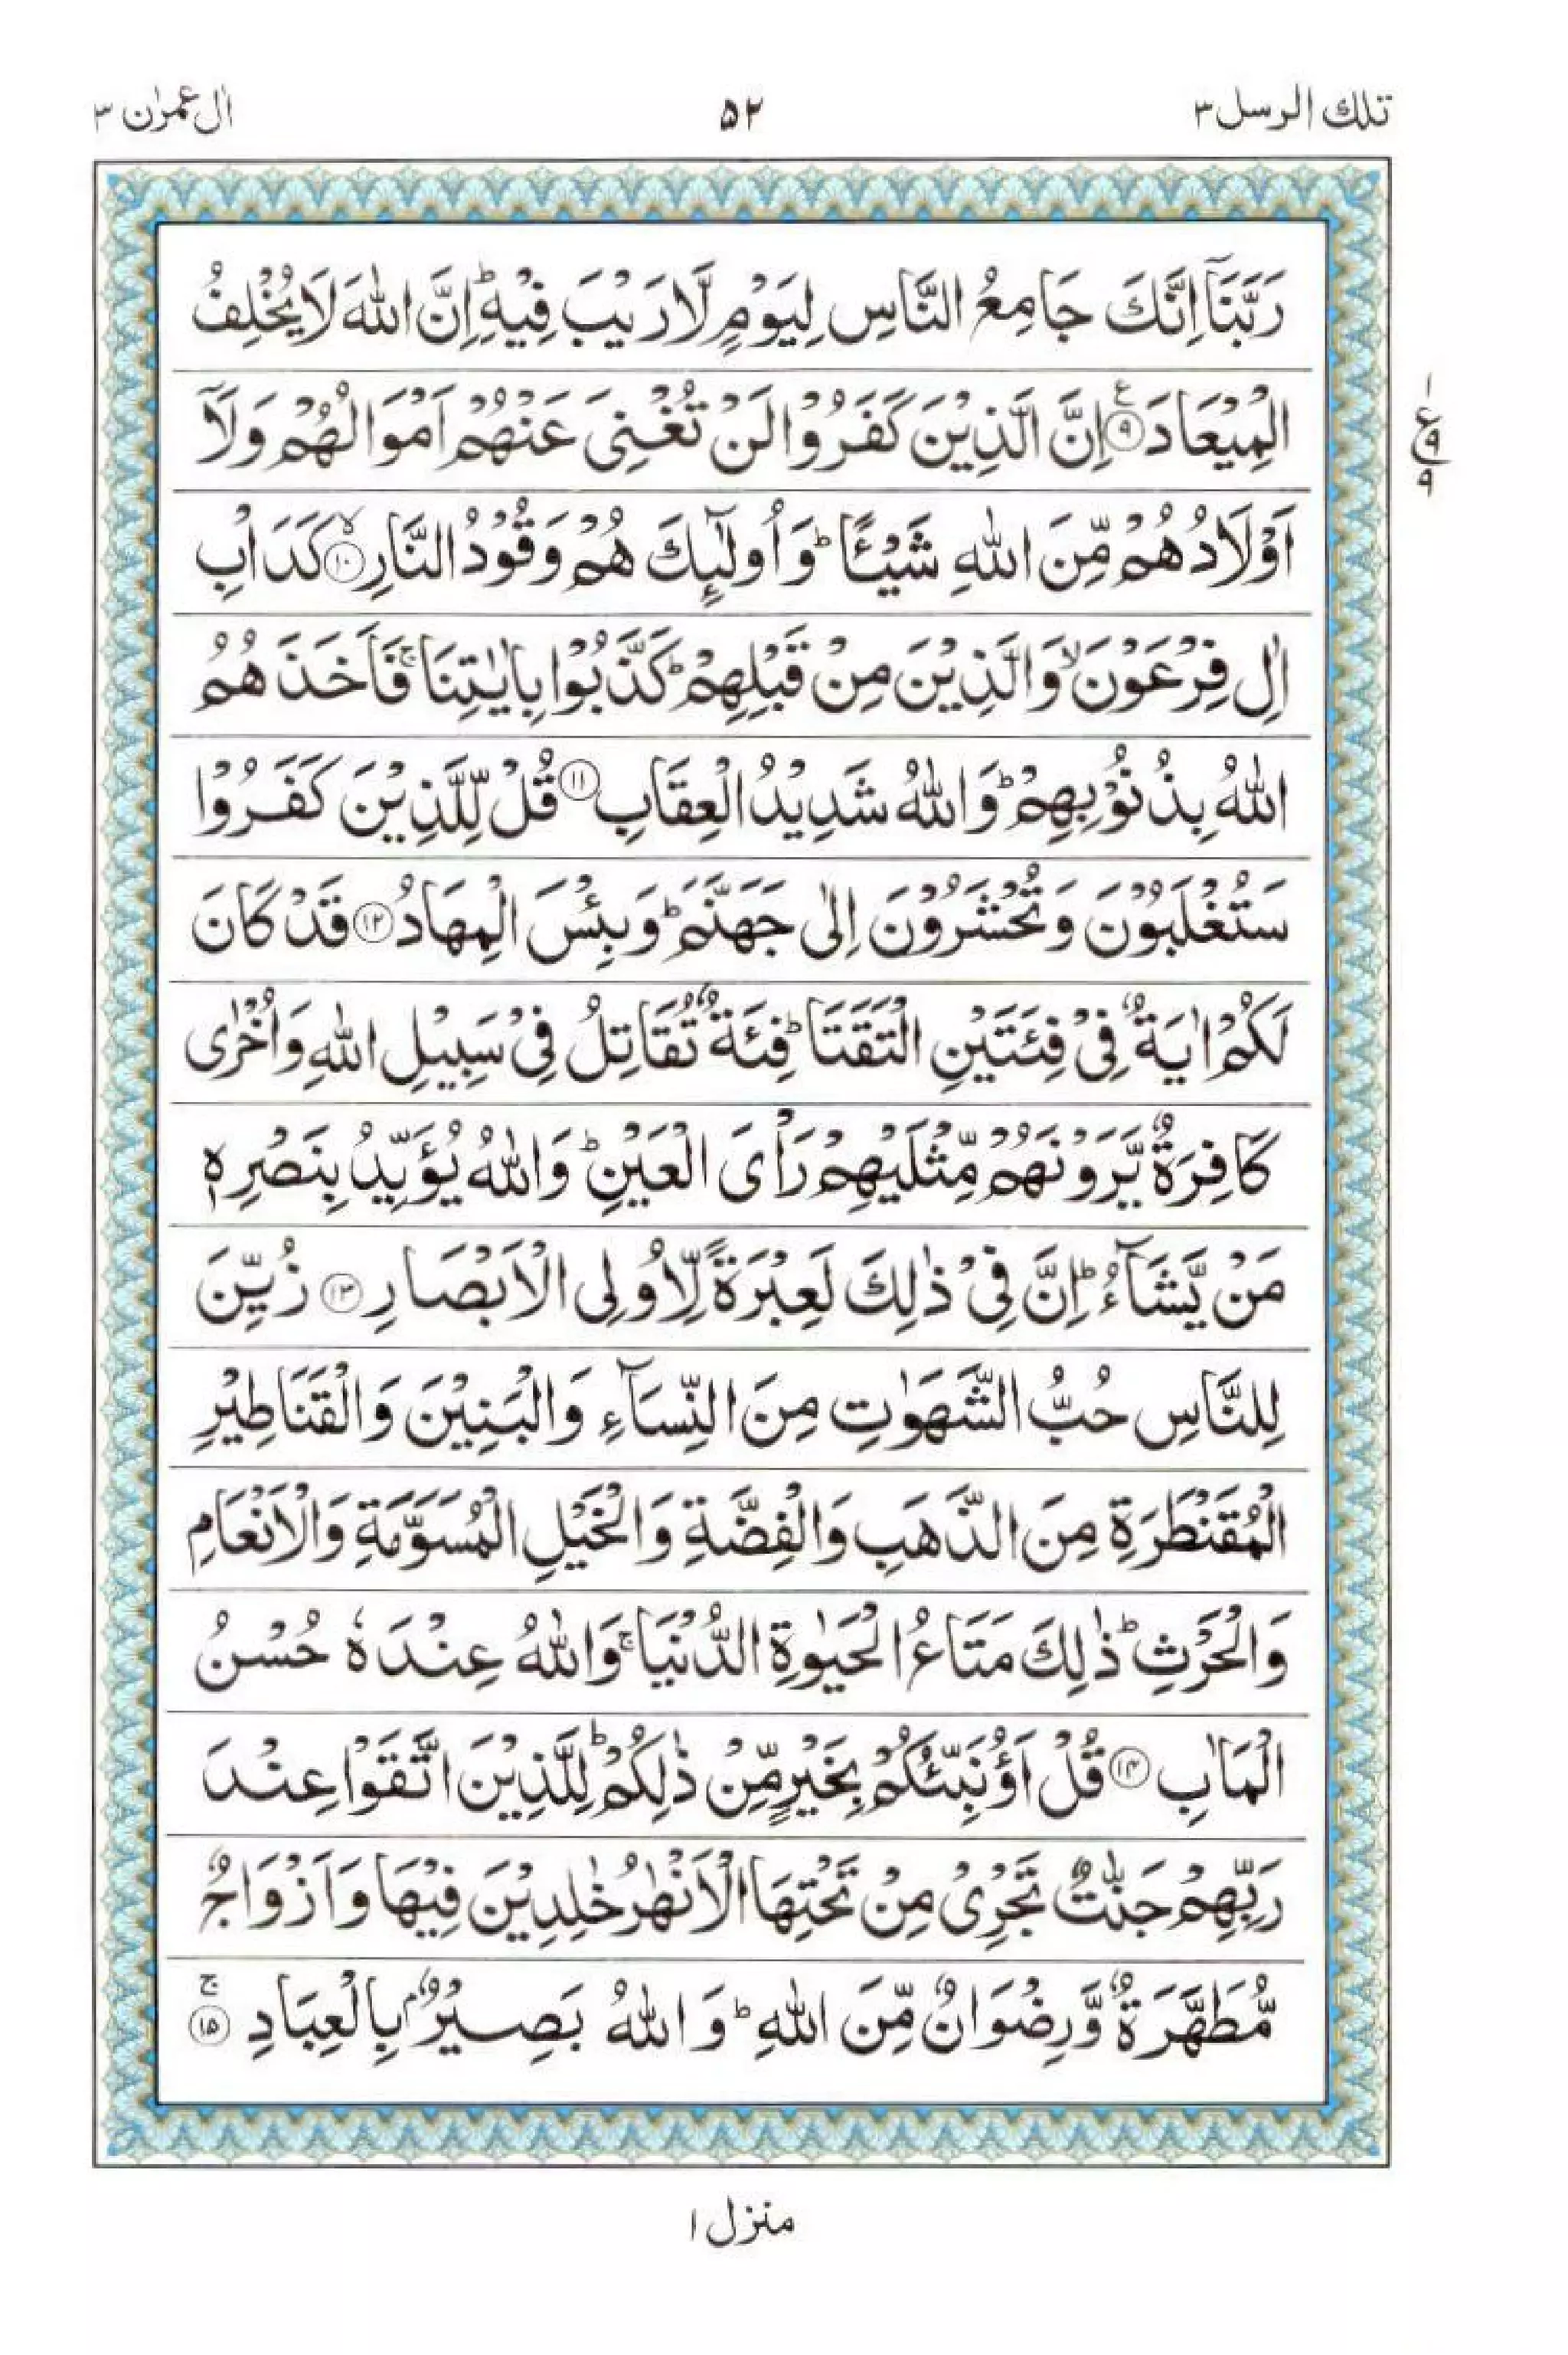 تلك الرسل ٣
٥٢
اٰل عمرٰن ٣
رَبَّنَاۤ اِنَّكَ جَامِعُ النَّاسِ لِيَوْمٍ لَّا رَيْبَ فِيْهِ ؕ اِنَّ اللّٰهَ لَا يُخْلِفُ
الْمِيْعَادَ ۹ ع اِنَّ الَّذِيْنَ كَفَرُوْا لَنْ تُغْنِىَ عَنْهُمْ اَمْوَالُهُمْ وَلَاۤ
ع
۱
۹
۹
اَوْلَادُهُمْ مِّنَ اللّٰهِ شَيْـًٔا ؕ وَاُولٰٓئِكَ هُمْ وَقُوْدُ النَّارِ ۱۰ ۙ كَدَاْبِ
اٰلِ فِرْعَوْنَ ۙ وَالَّذِيْنَ مِنْ قَبْلِهِمْ ؕ كَذَّبُوْا بِاٰيٰتِنَا ۚ فَاَخَذَهُمُ
اللّٰهُ بِذُنُوْبِهِمْ ؕ وَاللّٰهُ شَدِيْدُ الْعِقَابِ ۱۱ قُلْ لِّلَّذِيْنَ كَفَرُوْا
سَتُغْلَبُوْنَ وَتُحْشَرُوْنَ اِلٰى جَهَنَّمَ ؕ وَبِئْسَ الْمِهَادُ ۱۲ قَدْ كَانَ
لَكُمْ اٰيَةٌ فِىْ فِئَتَيْنِ الْتَقَتَا ؕ فِئَةٌ تُقَاتِلُ فِىْ سَبِيْلِ اللّٰهِ وَاُخْرٰى
كَافِرَةٌ يَّرَوْنَهُمْ مِّثْلَيْهِمْ رَاْىَ الْعَيْنِ ؕ وَاللّٰهُ يُؤَيِّدُ بِنَصْرِهٖ
مَنْ يَّشَآءُ ؕ اِنَّ فِىْ ذٰلِكَ لَعِبْرَةً لِّاُولِى الْاَبْصَارِ ۱۳ زُيِّنَ
لِلنَّاسِ حُبُّ الشَّهَوٰتِ مِنَ النِّسَآءِ وَالْبَنِيْنَ وَالْقَنَاطِيْرِ
الْمُقَنْطَرَةِ مِنَ الذَّهَبِ وَالْفِضَّةِ وَالْخَيْلِ الْمُسَوَّمَةِ وَالْاَنْعَامِ
وَالْحَرْثِ ؕ ذٰلِكَ مَتَاعُ الْحَيٰوةِ الدُّنْيَا ۚ وَاللّٰهُ عِنْدَهٗ حُسْنُ
الْمَاٰبِ ۱۴ قُلْ اَؤُنَبِّئُكُمْ بِخَيْرٍ مِّنْ ذٰلِكُمْ ؕ لِلَّذِيْنَ اتَّقَوْا عِنْدَ
رَبِّهِمْ جَنّٰتٌ تَجْرِىْ مِنْ تَحْتِهَا الْاَنْهٰرُ خٰلِدِيْنَ فِيْهَا وَاَزْوَاجٌ
مُّطَهَّرَةٌ وَّرِضْوَانٌ مِّنَ اللّٰهِ ؕ وَاللّٰهُ بَصِيْرٌۢ بِالْعِبَادِ ۱۵ ۚ
منزل ١